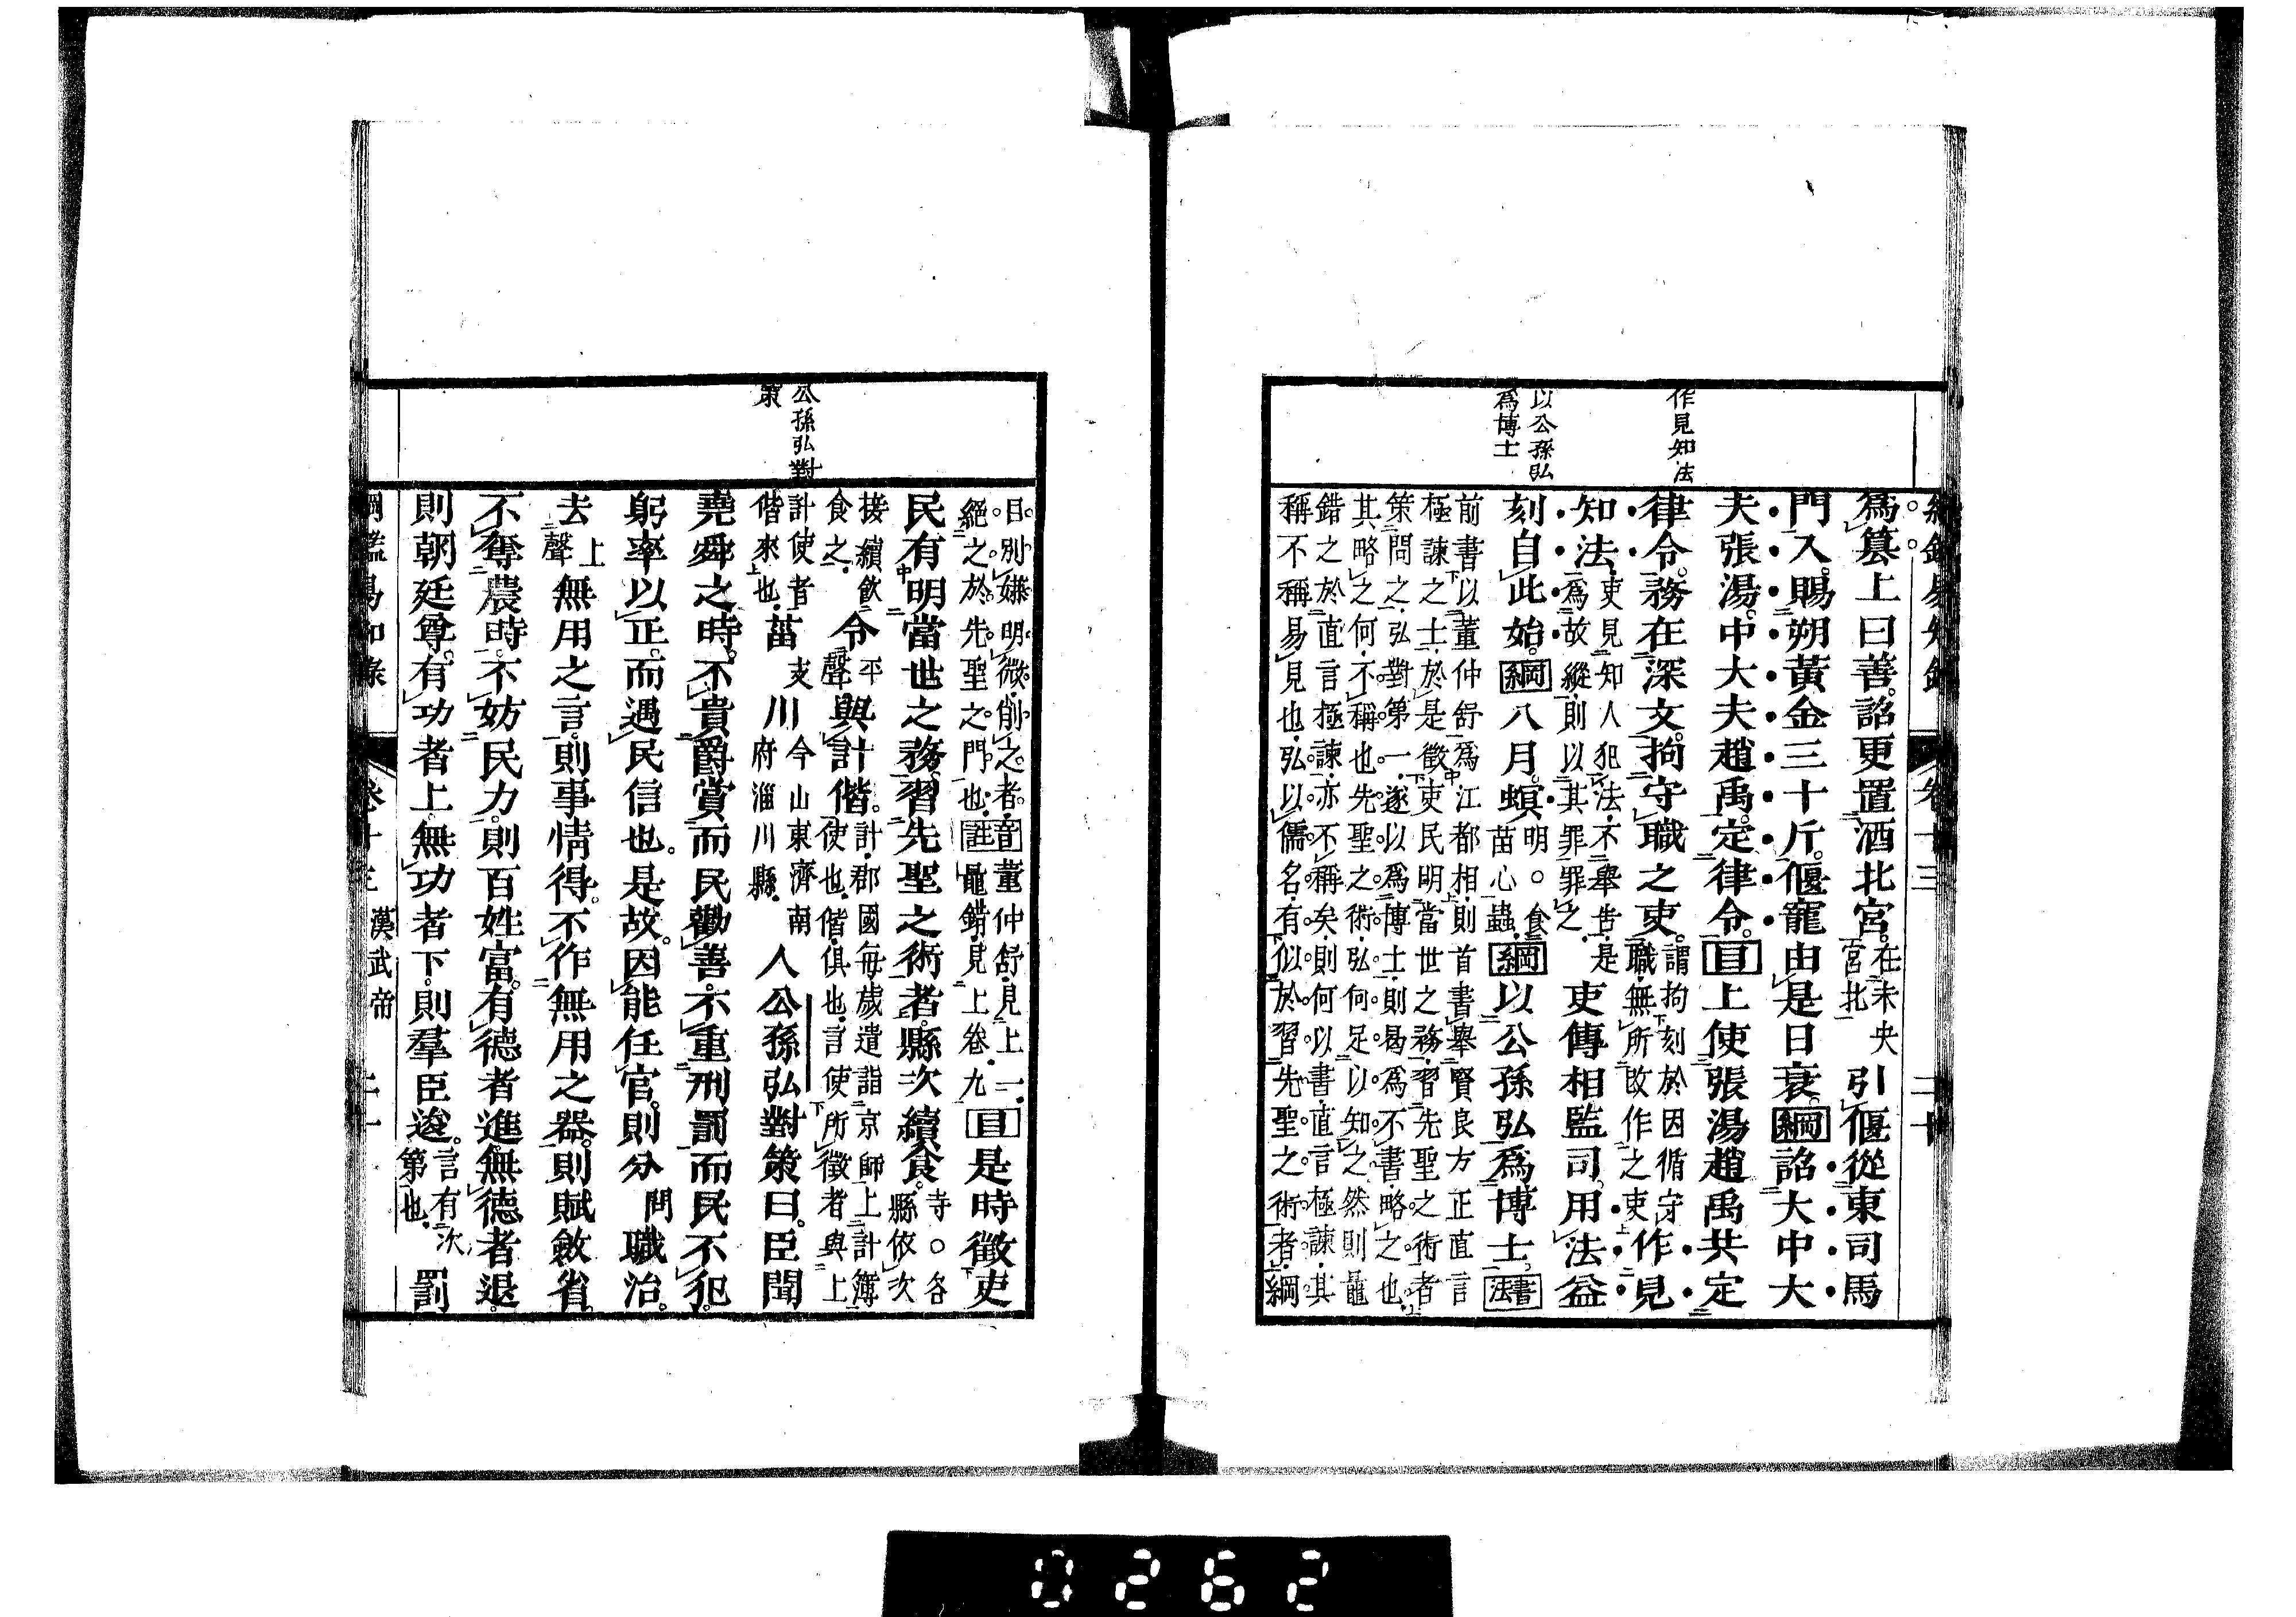 綱鑑易知錄 卷十三 二十
作見知法
以公孫弘
爲博士
爲簒上曰善詔更置酒北宮在未央宮北引偃從東司馬
門入賜朔黃金三十斤偃寵由是日衰綱詔大中大
夫張湯中大夫趙禹定律令目上使張湯趙禹共定
律令務在深文拘守職之吏謂拘刻於因循守職無所改作之吏作見
知法吏見知人犯法不舉告是爲故縱則以其罪罪之吏傳相監司用法益
刻自此始綱八月螟明○食苗心蟲綱以公孫弘爲博士書法
前書以董仲舒爲江都相則首書舉賢良方正直言
極諫之士於是徵吏民明當世之務習先聖之術者
策問之弘對第一遂以爲博士則曷爲不書略之也
其略之何不稱也先聖之術弘何足以知之然則鼂
錯之於直言極諫亦不稱矣則何以書直言極諫其
稱不稱易見也弘以儒名有似於習先聖之術者綱
目別嫌明微削之者
絕之於先聖之門也音註董仲舒見上一鼂錯見上卷九目是時徵吏
民有明當世之務習先聖之術者縣次續食寺○各縣依次
接續飲食之令平聲與計偕計郡國每歲遣詣京師上計簿使也偕俱也言使所徵者與上
計使者偕來也菑支川今山東濟南府淄川縣人公孫弘對策曰臣聞
堯舜之時不貴爵賞而民勸善不重刑罰而民不犯
躬率以正而遇民信也是故因能任官則分問職治
去上聲無用之言則事情得不作無用之器則賦斂省
不奪農時不妨民力則百姓富有德者進無德者退
則朝廷尊有功者上無功者下則羣臣逡言有次第也罰
公孫弘對
策
綱鑑易知錄 卷十三 漢武帝 二十一
0262